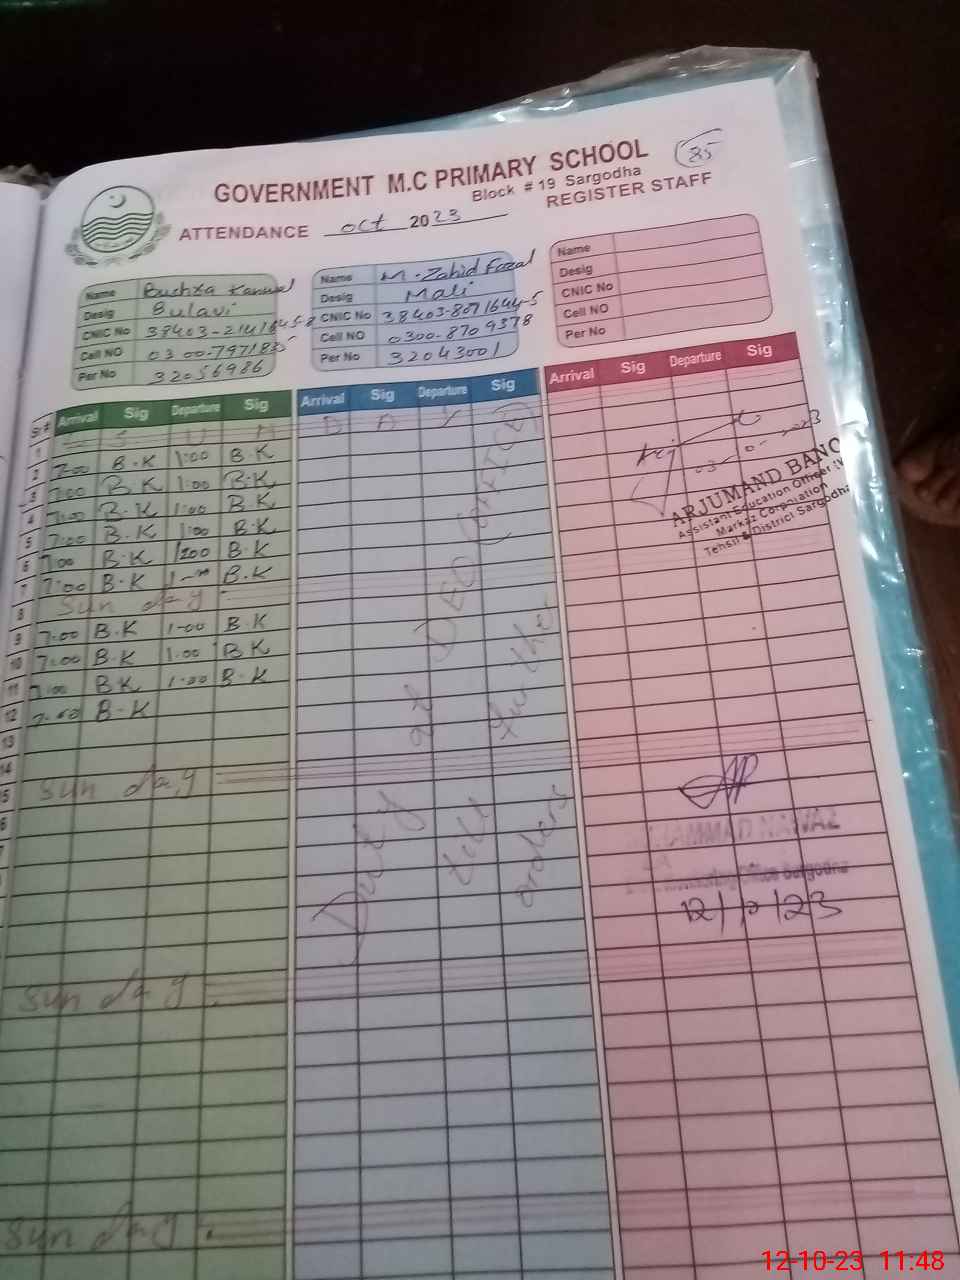 GOVERNMENT M.C PRIMARY SCHOOL
85
Block # 19 Sargodha
ATTENDANCE Oct 2023 REGISTER STAFF
Name Bushra Kanwal
Desig Bulavi
CNIC No 38403-2141645-8
Cell NO 0300-797188
Per No 32056986
Name M. Zahid Fazal
Desig Mali
CNIC No 38403-8071644-5
Cell NO 0300-8709378
Per No 32043001
Name
Desig
CNIC No
Cell NO
Per No
Sr# Arrival Sig Departure Sig Arrival Sig Departure Sig Arrival Sig Departure Sig
1 S U N D A Y
2 7:00 B.K 1:00 B.K
3 7:00 B.K 1:00 B.K
4 7:00 B.K 1:00 B.K
5 7:00 B.K 1:00 B.K
6 7:00 B.K 1:00 B.K
7 7:00 B.K 1-00 B.K
8 Sun day
9 7:00 B.K 1-00 B.K
10 7:00 B.K 1:00 B.K
11 7:00 B.K 1:00 B.K
12 7:00 B.K
13
14
5 Sun day
6
Sun day
Sun day
Duty at DEO (OFFICE)
till further
orders
ARJUMAND BANO
Assistant Education Officer (W
Markaz Corporation
Tehsil & District Sargodha
MUHAMMAD NAWAZ
Office Sargodha
12/10/23
12-10-23 11:48